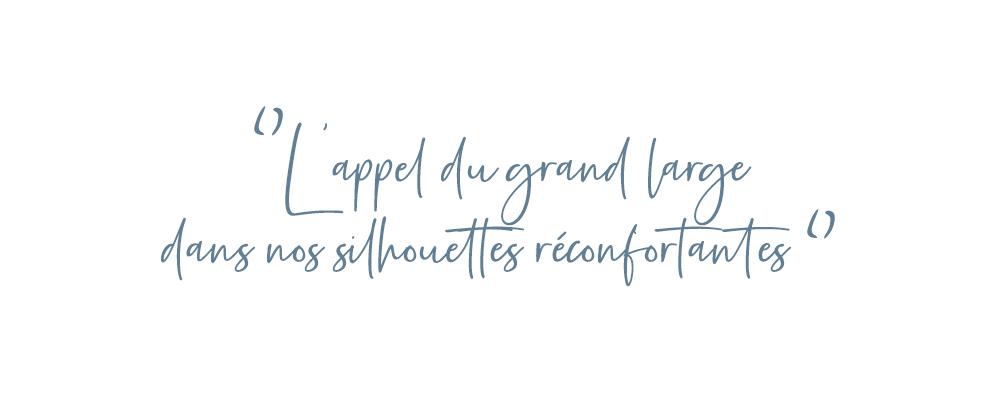 ‘’L'appel du grand large
dans nos silhouettes réconfortantes ‘’